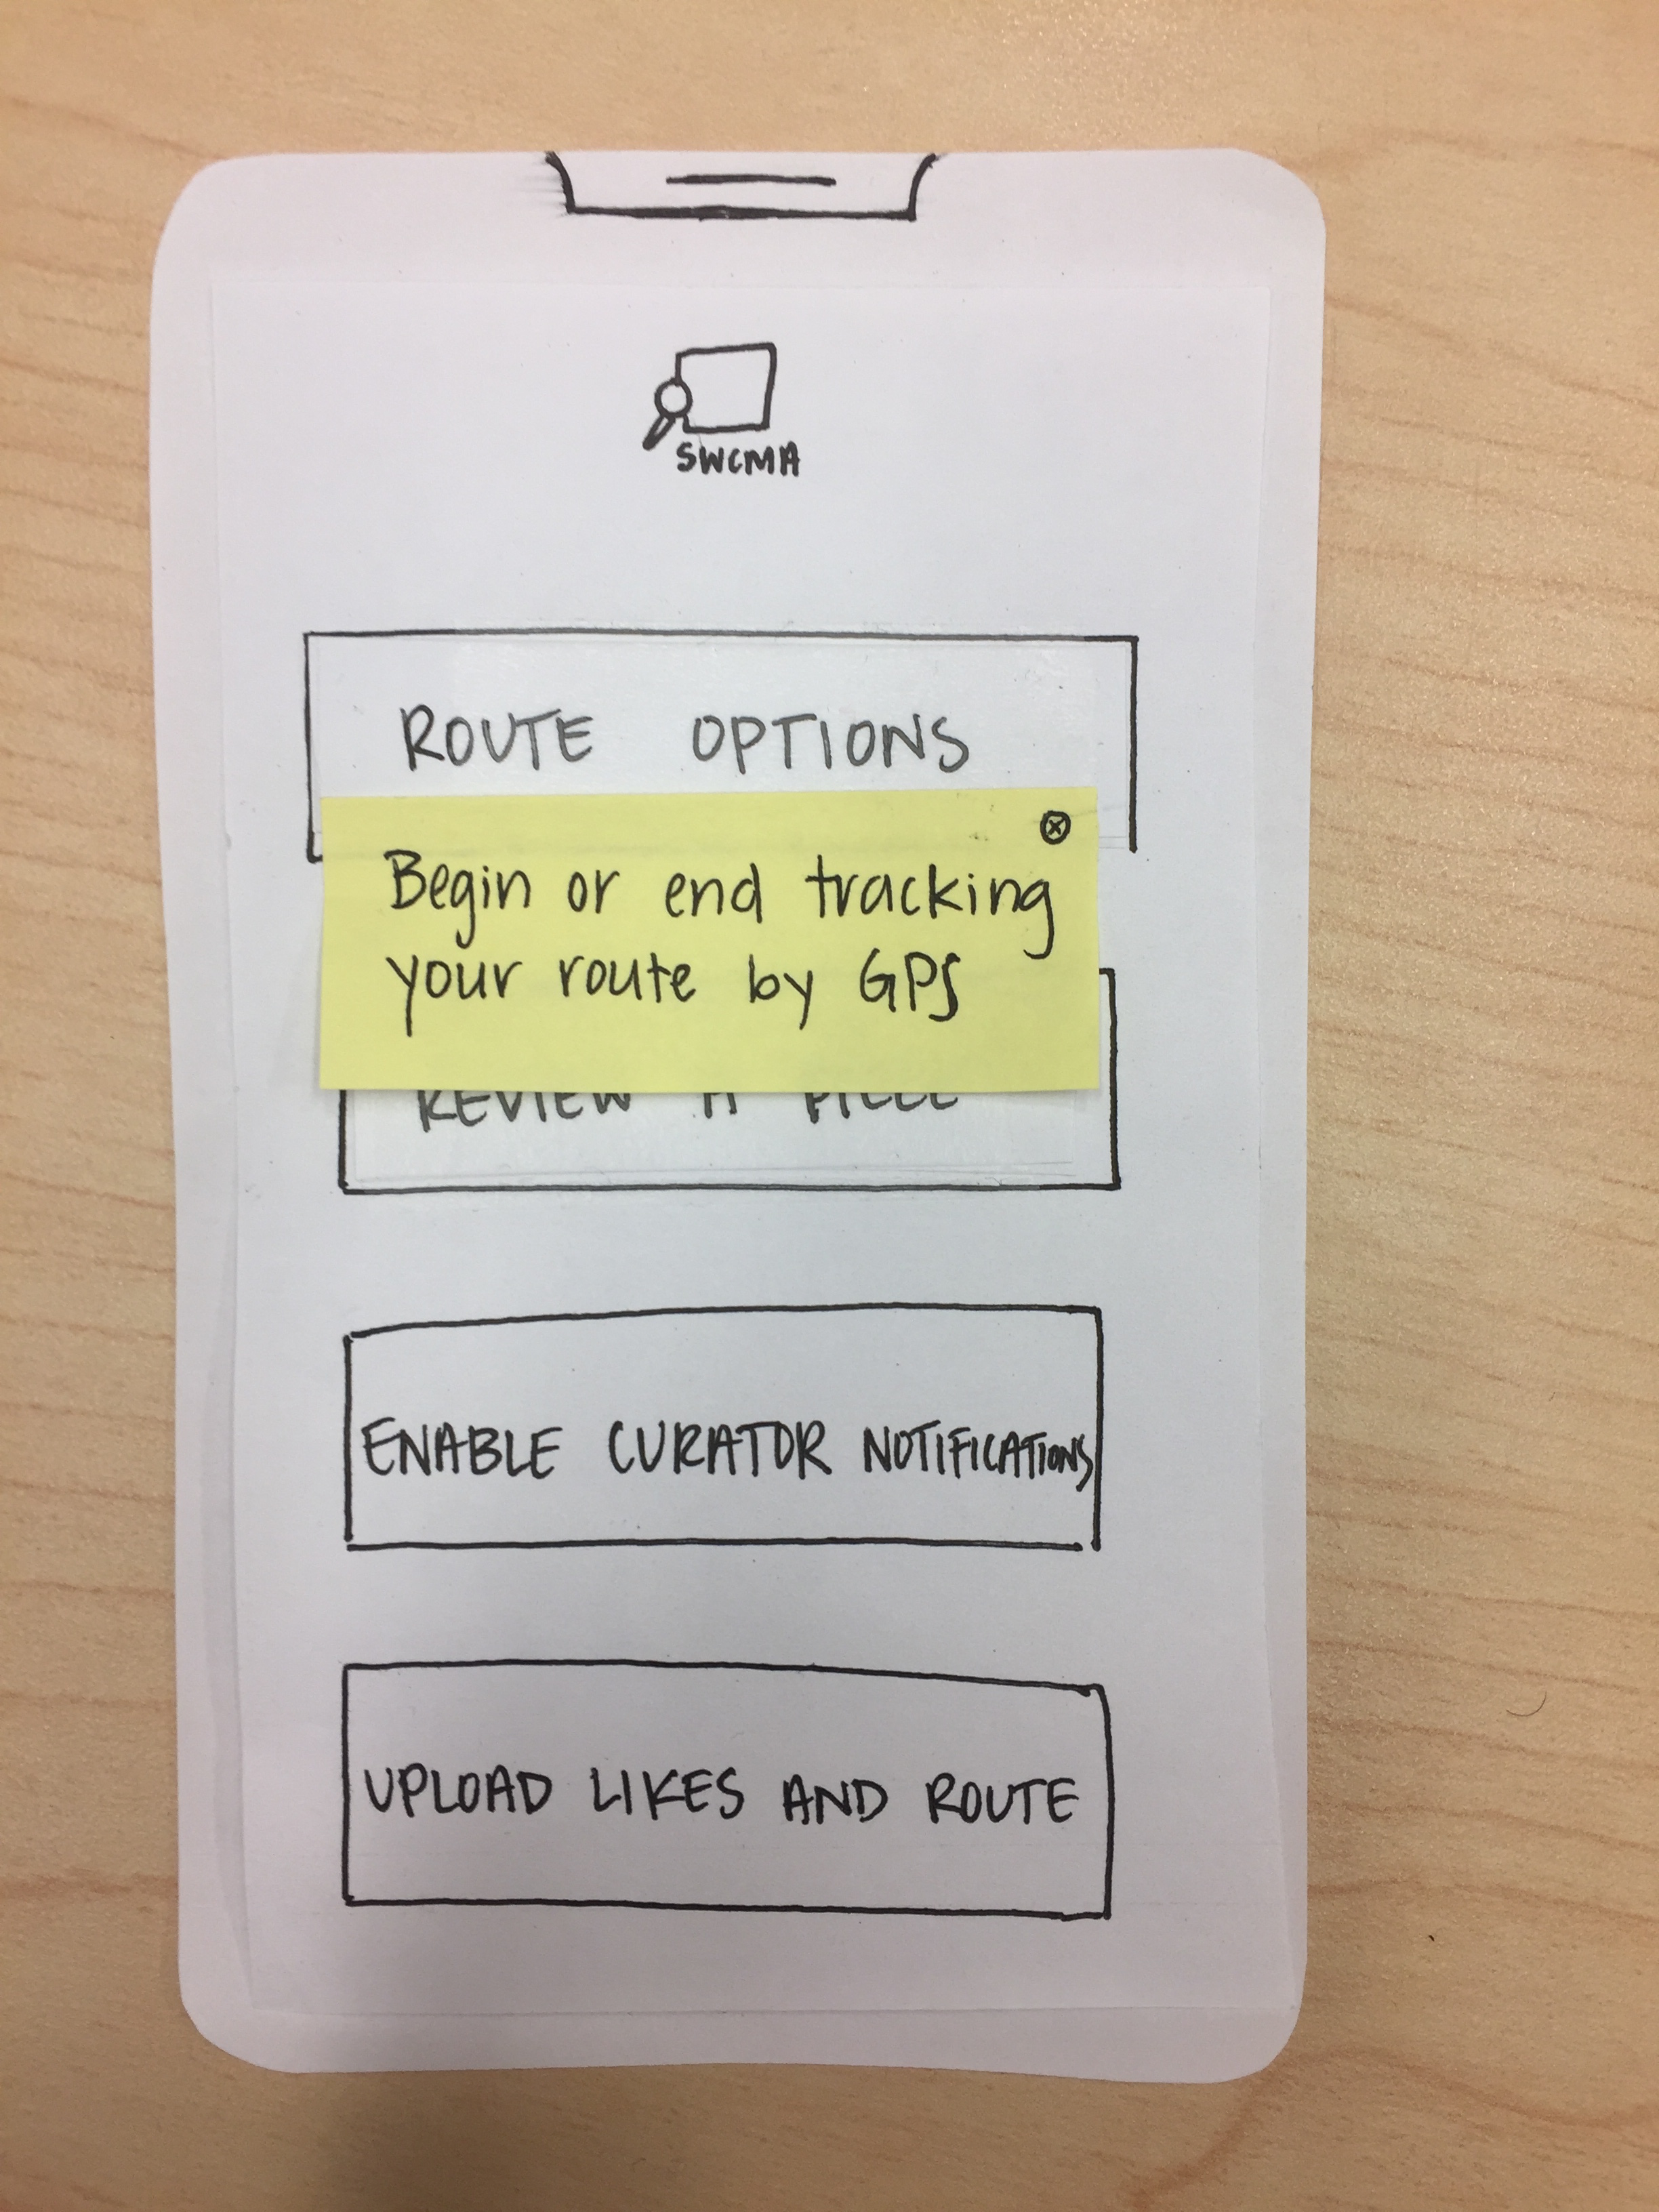 SWCMA
ROUTE OPTIONS
Begin or end tracking
your route by GPS
REVIEW A PIECE
ENABLE CURATOR NOTIFICATIONS
UPLOAD LIKES AND ROUTE